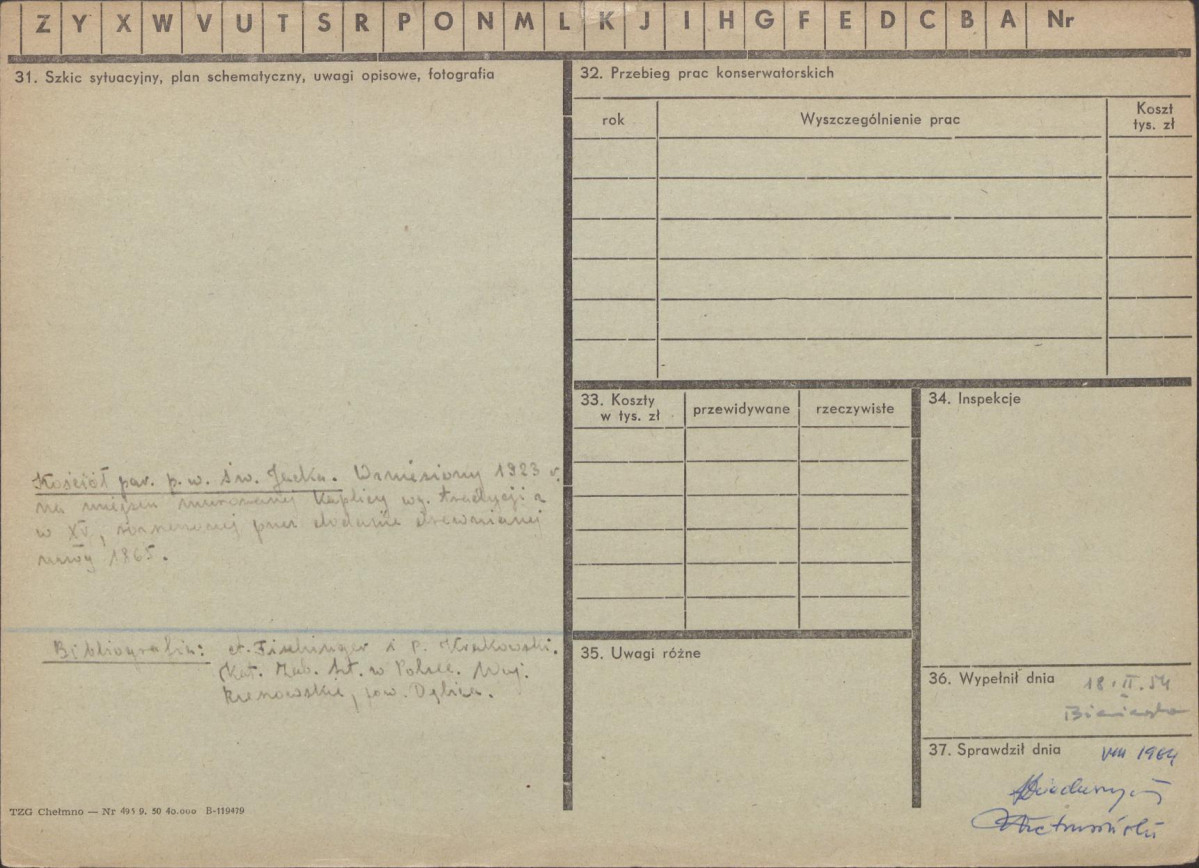 Z Y X W V U T S R P O N M L K J I H G F E D C B A Nr
31. Szkic sytuacyjny, plan schematyczny, uwagi opisowe, fotografia
Kościół par. p.w. św. Jacka. Wzniesiony 1923 r.
na miejscu murowanej kaplicy wg. tradycji z
w XV, przez dodanie drewnianej
nawy 1865.
Bibliografia: Fischinger i P. Krakowski.
Kat. Zab. Szt. w Polsce. Woj.
rzeszowskie, pow. Dębica.
TZG Chełmno — Nr 495 9. 50 40.000 B-119479
32. Przebieg prac konserwatorskich
rok Wyszczególnienie prac Koszt
tys. zł
33. Koszty
w tys. zł przewidywane rzeczywiste
34. Inspekcje
35. Uwagi różne
36. Wypełnił dnia 18.II.54
37. Sprawdził dnia VIII 1964